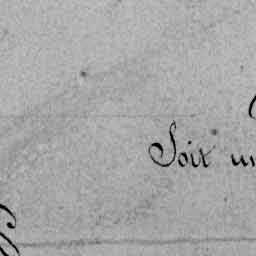 Soit un